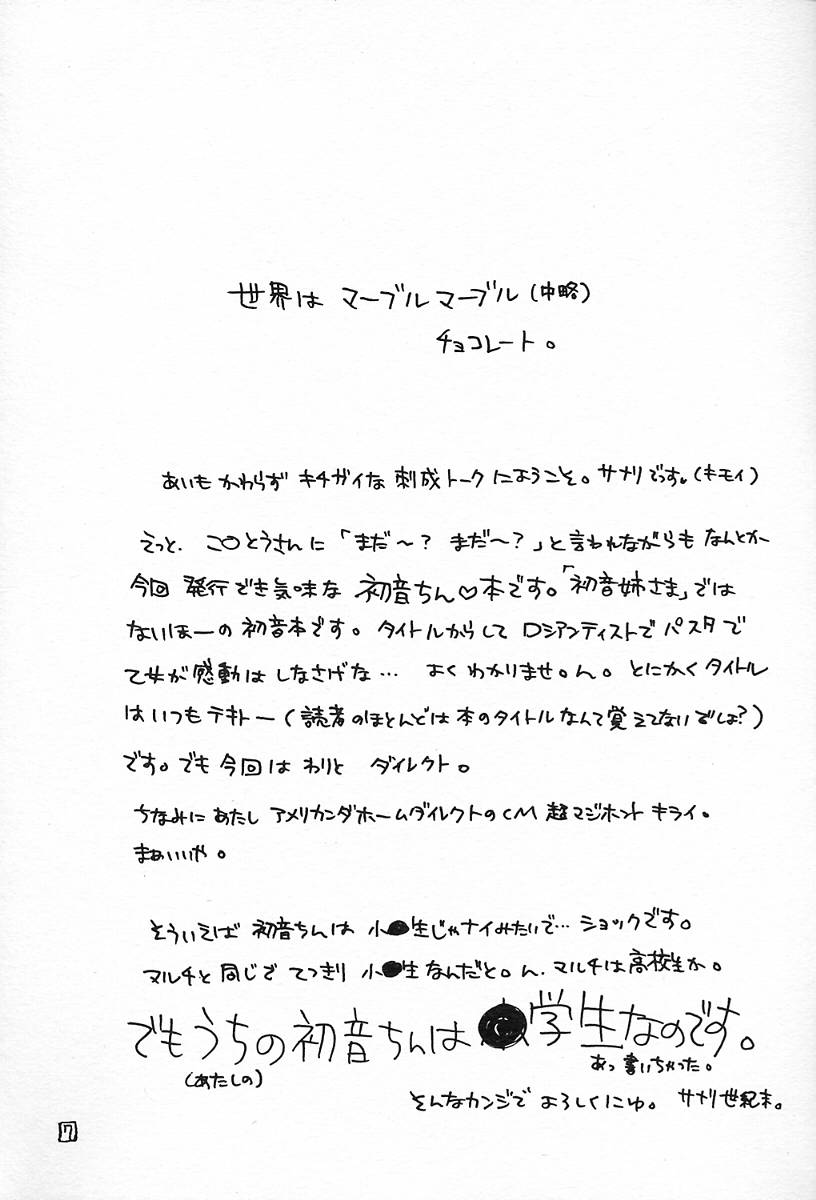 世界は マーブルマーブル(中略)
チョコレート。
あいも かわらず キチガイな 刺成トークにようこそ。サナリでっす。(キモイ)
えっと、この とうさんに「まだ〜? まだ〜?」と言われながらも なんとか
今回 発行でき気味な 初音ちん♡本です。「初音姉さま」では
ないほーの初音本です。タイトルからして ロシアンティストで パスタで
乙女が感動は しなさげな… よく わかりませ。ん。とにかくタイトル
はいつもテキトー(読者のほとんどは本のタイトルなんて覚えてないでしょ?)
です。でも今回は わりと ダイレクト。
ちなみに あたし アメリカンダホームダイレクトのCM 超マジホント キライ。
まぁいいや。
そういえば 初音ちんは 小●生じゃナイみたいで…ショックです。
マルチと同じで てっきり 小●生なんだと。ん、マルチは高校生か。
でもうちの初音ちんは●学生なのです。
(あたしの) あっ書いちゃった。
そんなカンジで よろしくにゅ。 サナリ世紀末。
7